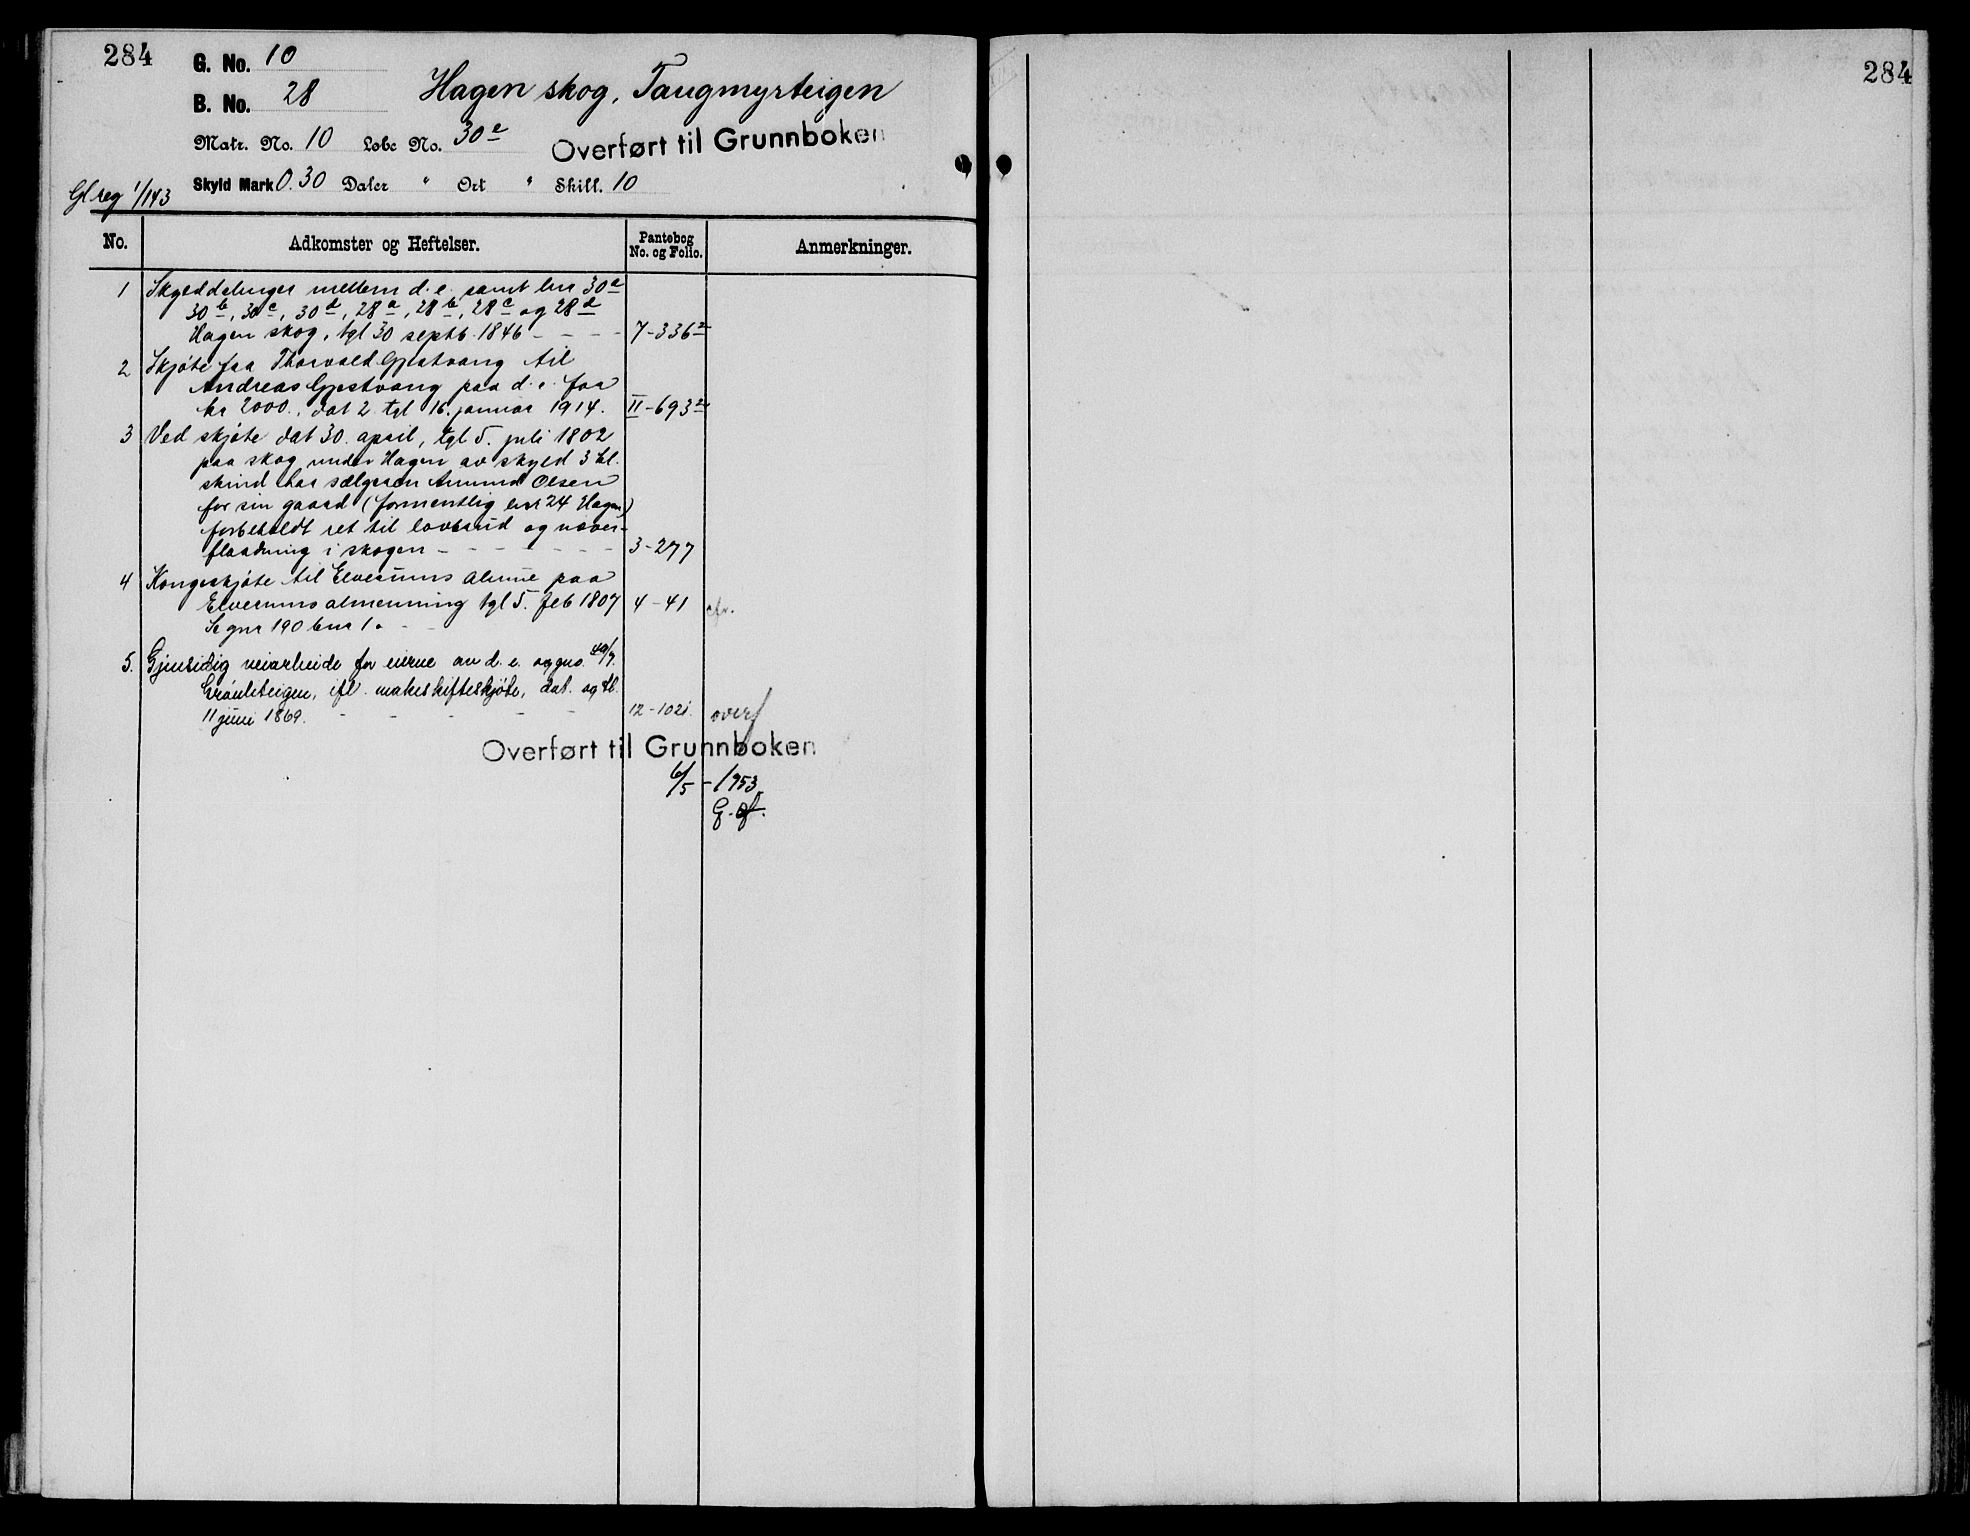 284
G. No. 10
B. No. 28
Hagen skog, Taugmyrteigen
Matr. No. 10 Løbe No. 30e
Overført til Grunnboken
Skyld Mark 0.30 Daler " Ort " Skill. 10
Gl reg 1/143
No. Adkomster og Heftelser. Pantebog No. og Folio. Anmerkninger.
1 Skylddelinger mellem d. e. samt lnr 30a
30b, 30c, 30d, 28a, 28b, 28c og 28d
Hagen skog, tgl 30 septb. 1846 - - - 7-336
2 Skjøte fra Thorvald Gjestvang til
Andreas Gjestvang paa d. e. for
kr 2000., dat 2. tgl 16. januar 1914. II-693
3 Ved skjøte dat 30. april, tgl 5. juli 1802
paa skog under Hagen av skyld 3 kl.
skind har sælgeren Amund Olsen
for sin gaard (formentlig lnr 24 Hagen)
forbeholdt ret til lovbrud og never-
flaadning i skogen - - - - - - - 3-277
4 Kongeskjøte til Elverums almue paa
Elverums almenning tgl 5. feb 1807 4-41 cfr.
Se gnr 190 bnr 1. - -
5. Gjensidig veiarbeide for eierne av d. e. og gno. 49/7.
Grønliteigen, ifl. makeskifteskjøte, dat. og tl.
11 juni 1869. - - - - - 12-102 overf
Overført til Grunnboken
6/5-1953
284